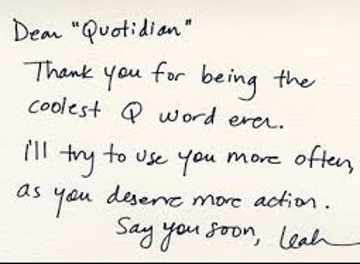 Dear "Quotidian"
Thank you for being the
coolest Q word ever.
I'll try to use you more often,
as you deserve more action.
Say you soon, Leah